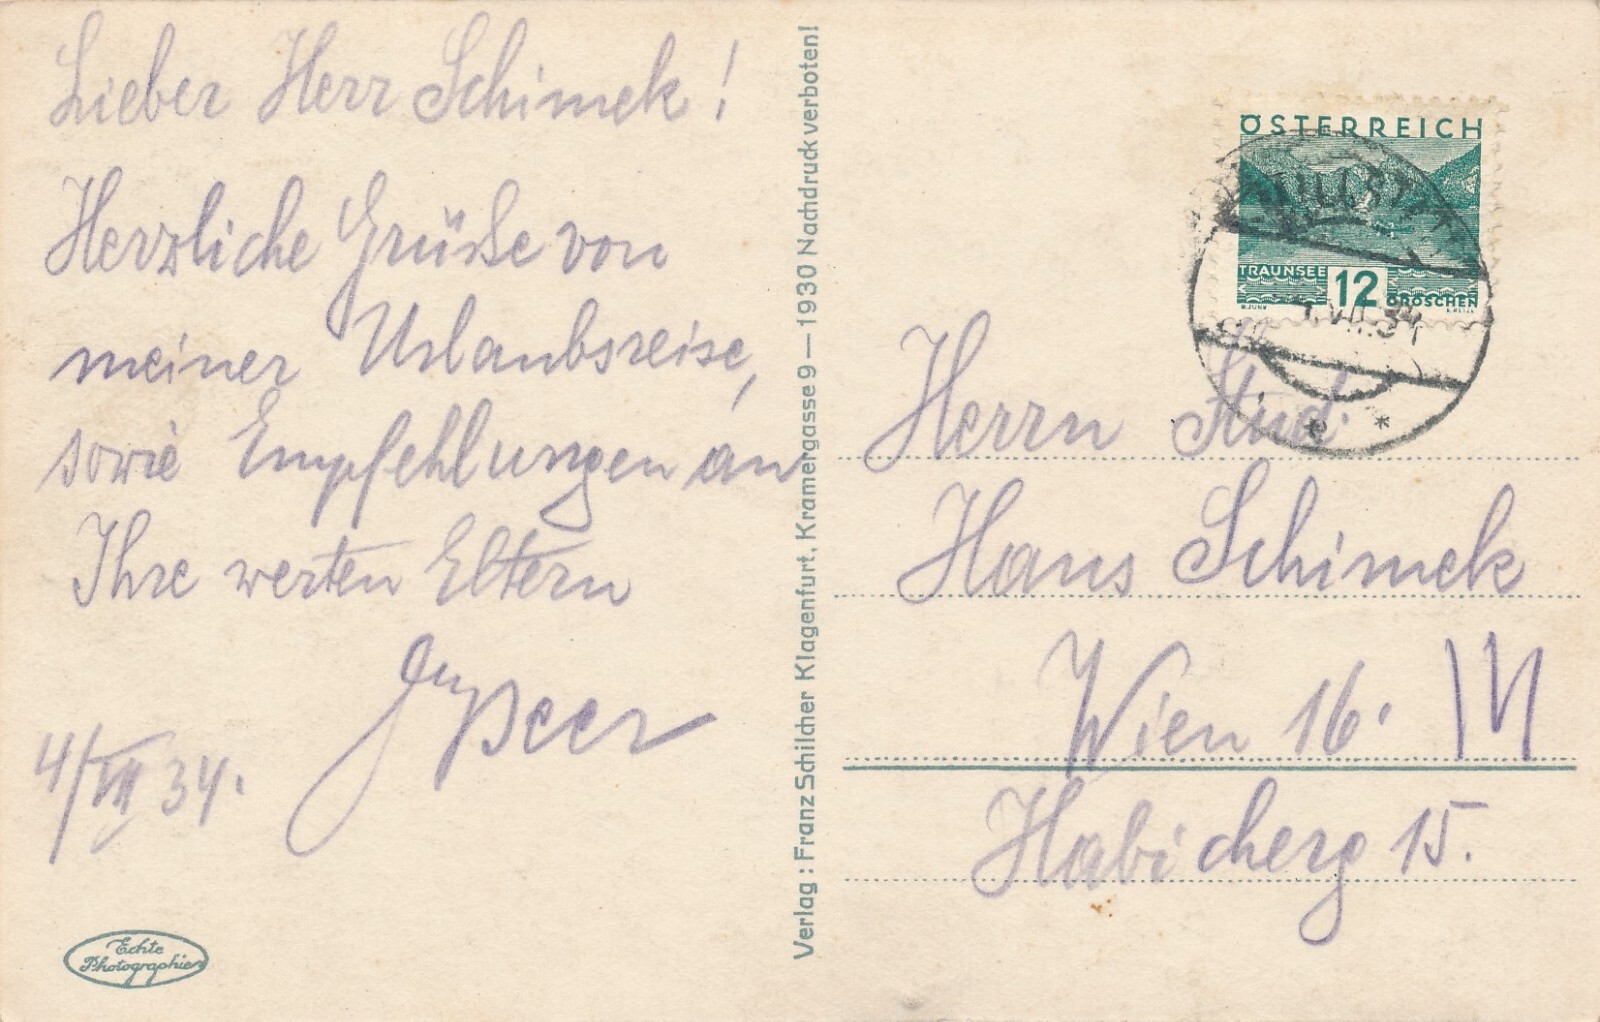 Lieber Herr Schimek!
Herzliche Grüße von
meiner Urlaubsreise,
sowie Empfehlungen an
Ihre werten Eltern
4/VII 34.
Echte
Photographie
Verlag: Franz Schilcher Klagenfurt, Kramergasse 9 — 1930 Nachdruck verboten!
ÖSTERREICH
TRAUNSEE 12 GROSCHEN
MILLSTATT
VII.34
e *
Herrn Stud.
Hans Schimek
Wien 16.
Habicherg 15.